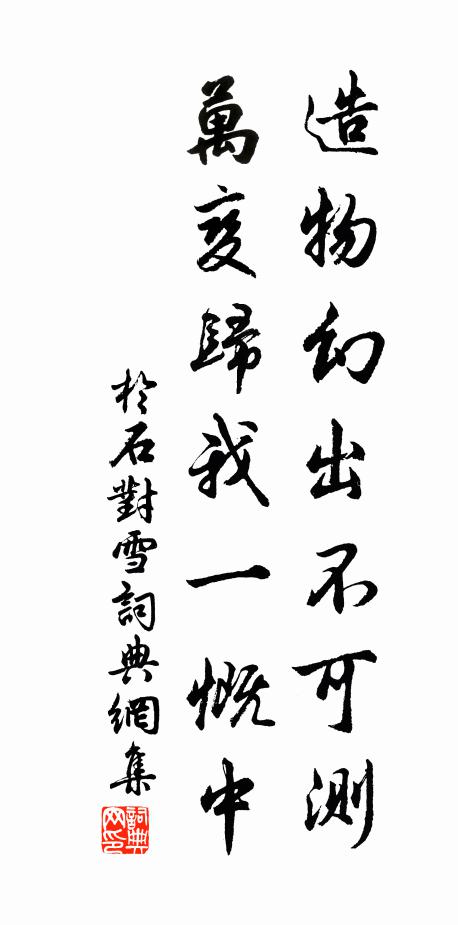 造物幻出不可測
萬变歸我一慨中
於石對雪詞典網集
詞典网印